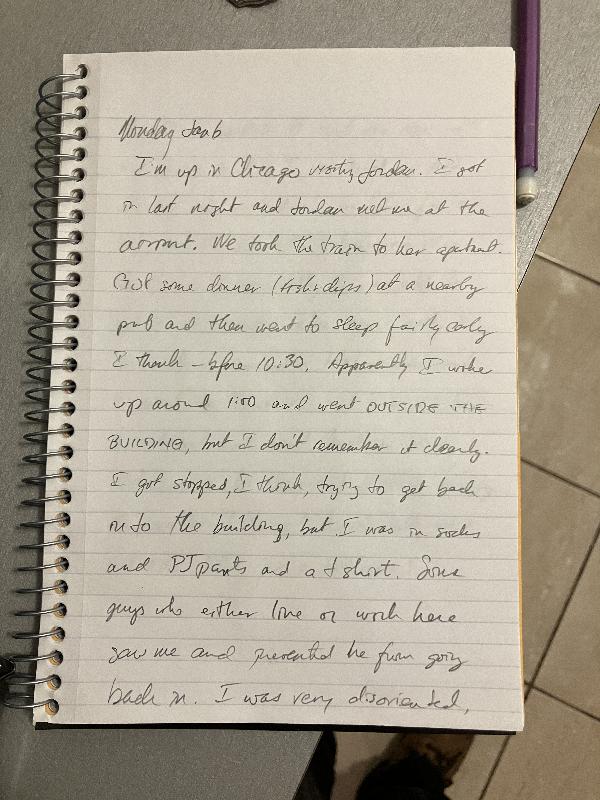 Monday Jan 6
I'm up in Chicago visiting Jordan. I got
in last night and Jordan met me at the
airport. We took the train to her apartment.
Got some dinner (fish+chips) at a nearby
pub and then went to sleep fairly early
I think - before 10:30. Apparently I woke
up around 1:00 and went OUTSIDE THE
BUILDING, but I don't remember it clearly.
I got stopped, I think, trying to get back
into the building, but I was in socks
and PJ pants and a t shirt. Some
guys who either live or work here
saw me and prevented me from going
back in. I was very disoriented,